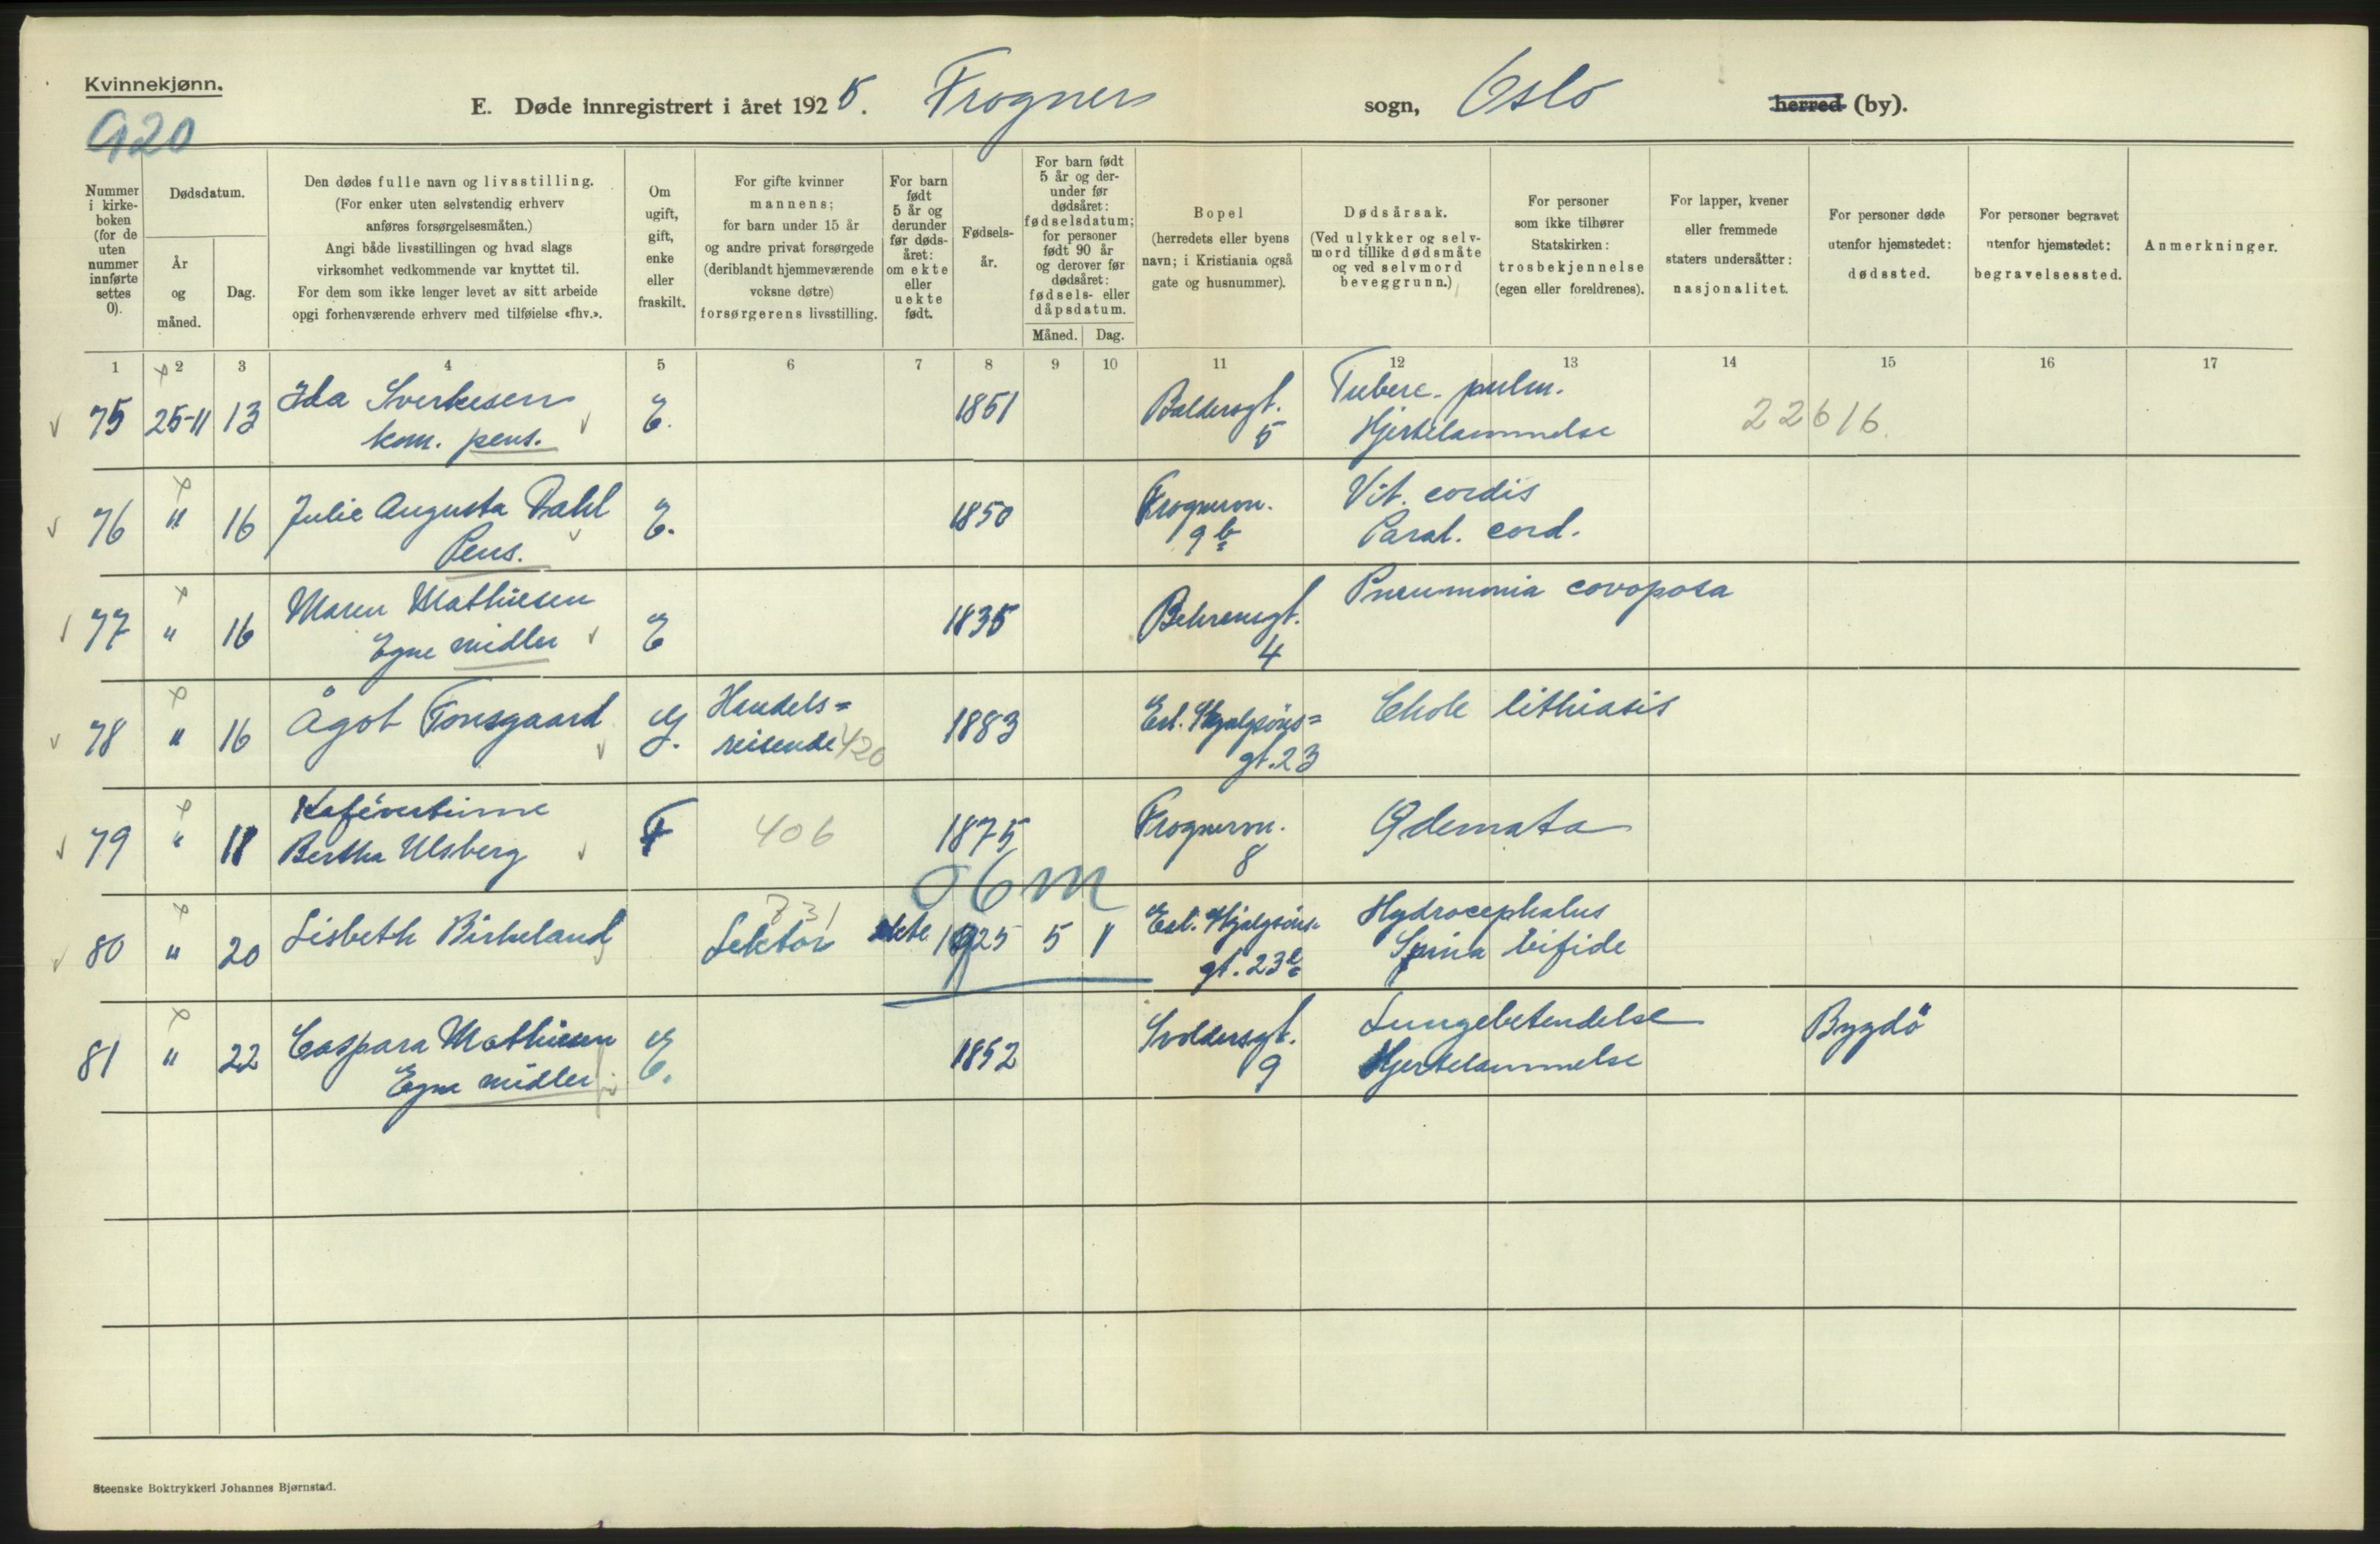 Kvinnekjønn.
920
E. Døde innregistrert i året 1925. Frogner sogn, Oslo herred (by).
Nummer i kirke-boken (for de uten nummer innførte settes 0).
Dødsdatum.
År og måned.
Dag.
Den dødes fulle navn og livsstilling.
(For enker uten selvstendig erhverv
anføres forsørgelsesmåten.)
Angi både livsstillingen og hvad slags
virksomhet vedkommende var knyttet til.
For dem som ikke lenger levet av sitt arbeide
opgi forhenværende erhverv med tilføielse «fhv.».
Om
ugift,
gift,
enke
eller
fraskilt.
For gifte kvinner
mannens;
for barn under 15 år
og andre privat forsørgede
(deriblandt hjemmeværende
voksne døtre)
forsørgerens livsstilling.
For barn
født
5 år og
derunder
før døds-
året:
om ekte
eller
uekte
født.
Fødsels-
år.
For barn født
5 år og der-
under før
dødsåret:
fødselsdatum;
for personer
født 90 år
og derover før
dødsåret:
fødsels- eller
dåpsdatum.
Måned. Dag.
Bopel
(herredets eller byens
navn; i Kristiania også
gate og husnummer).
Dødsårsak.
(Ved ulykker og selv-
mord tillike dødsmåte
og ved selvmord
beveggrunn.)
For personer
som ikke tilhører
Statskirken:
trosbekjennelse
(egen eller foreldrenes).
For lapper, kvener
eller fremmede
staters undersåtter:
nasjonalitet.
For personer døde
utenfor hjemstedet:
dødssted.
For personer begravet
utenfor hjemstedet:
begravelsessted.
Anmerkninger.
1 2 3 4 5 6 7 8 9 10 11 12 13 14 15 16 17
75 25-11 13 Ida Sverkesen E. 1851 Baldersgt. Tuberc. pulm.
kom. pens. 5 Hjertelammelse 22616
76 " 16 Julie Augusta Dahl E. 1850 Frognerv. Vit. cordis
Pens. 9b Paral. cord.
77 " 16 Maren Mathiesen E 1835 Behrensgt. Pneumonia
Egne midler 4
78 " 16 Ågot Tonsgaard G. Handels= 1883 Chole lithiasis
reisende 420 gt. 23
79 " 18 Kafévertinne
Bertha Ulsberg F 406 1875 Frognerv. 8
06m
731
80 " 20 Lisbeth Birkeland Lektor ekte 1925 5 1 Hydrocephalus
gt. 23 Spina bifide
81 " 22 Caspara Mathiesen E. 1852 Svoldersgt. Lungebetendelse Bygdö
Egne midler 9 Hjertelammelse
Steenske Boktrykkeri Johannes Bjørnstad.